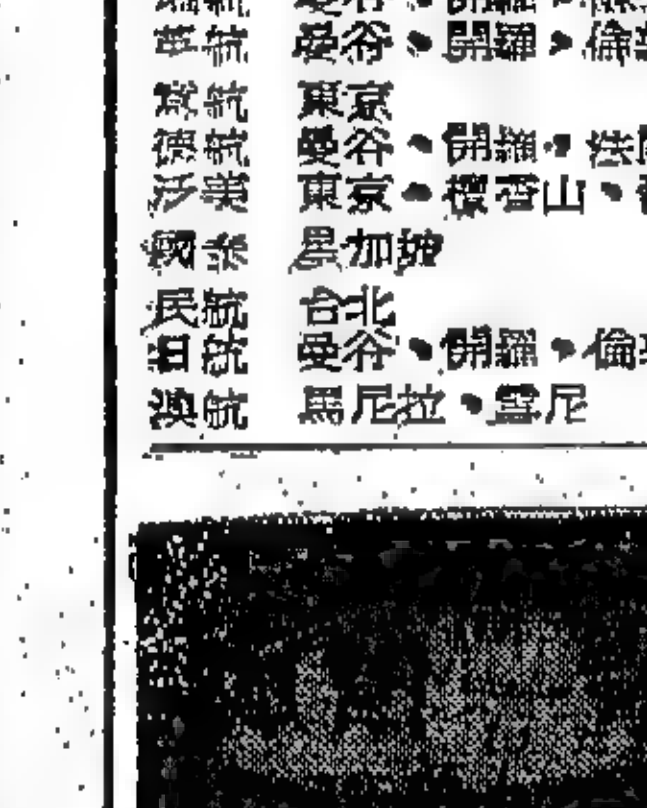 英航 曼谷・開羅・倫
東京
德航 曼谷・開羅・法
泛美 東京・檀香山・
國泰 星加坡
民航 台北
日航 曼谷・開羅・倫
澳航 馬尼拉・雪尼